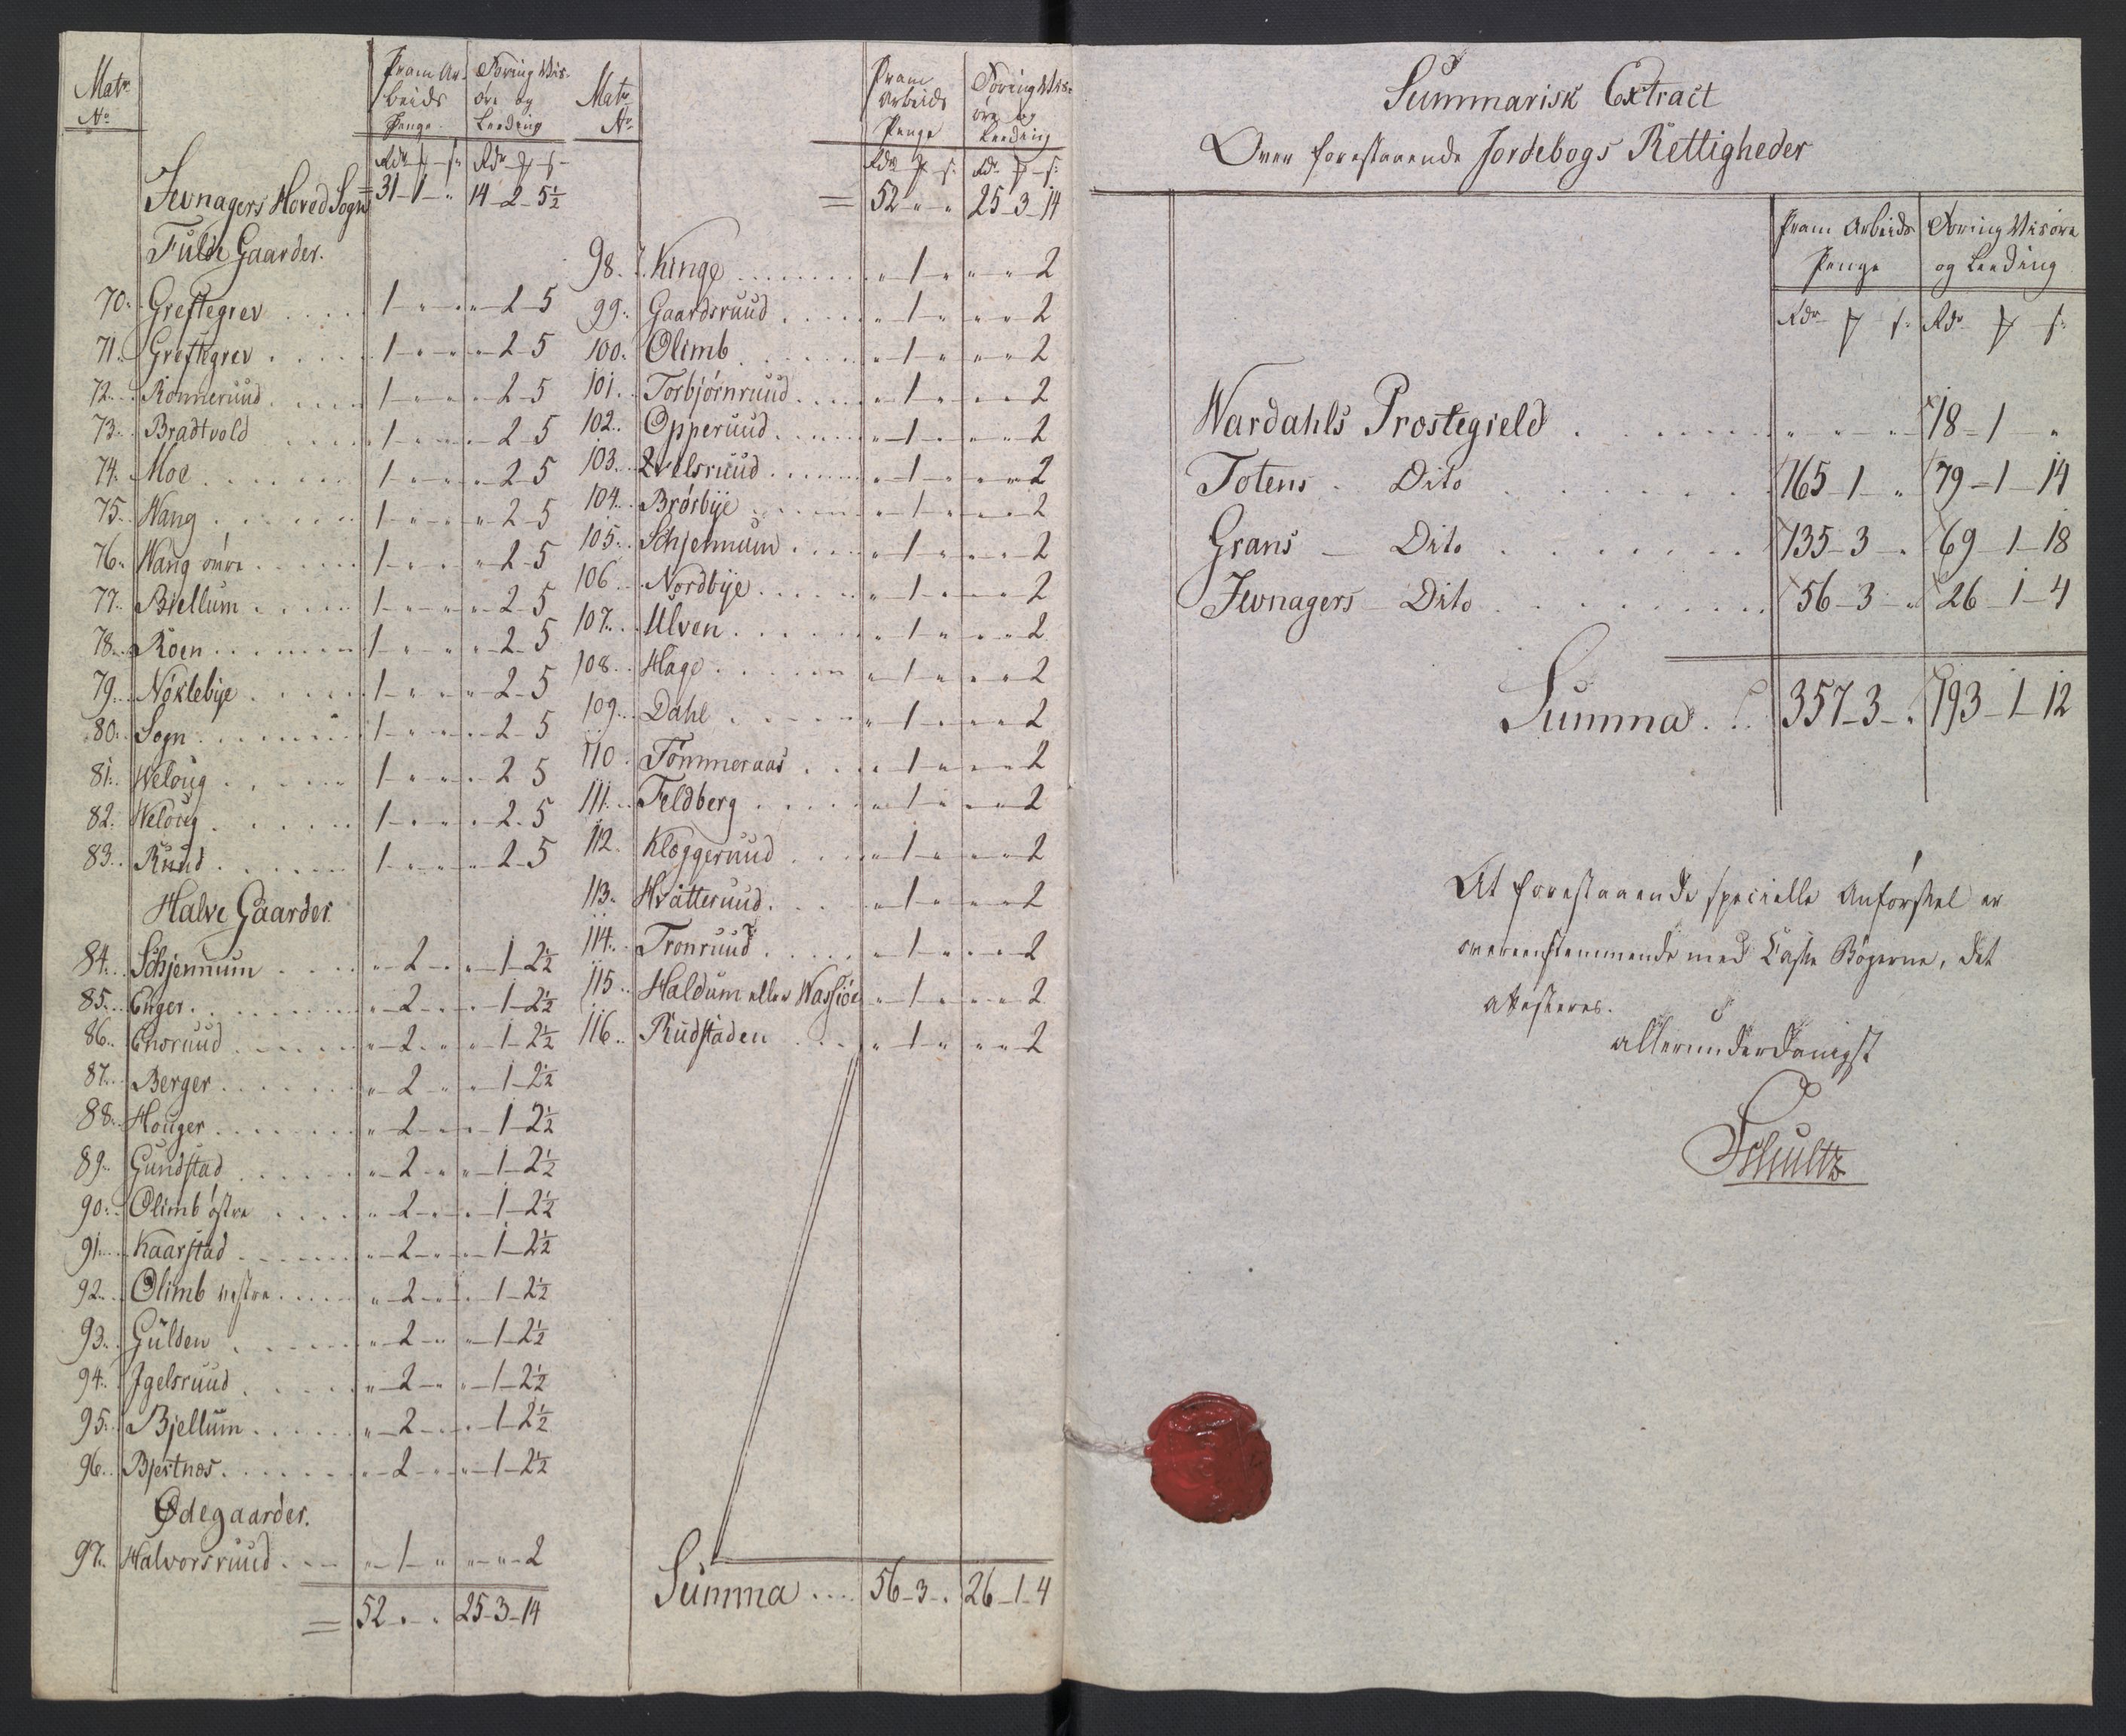 Matr No
Fram Arbeids Penge
Foring Wisøre og Leeding
Rdr ₰ s: Rdr ₰ s
Jevnagers Hoved Sogn = 31-1-" 14-2-5½
Fulde Gaarder.
70. Greftegrev .... 1-"-" "-2-5
71. Greftegrev .... 1-"-" "-2-5
72. Rønneruud .... 1-"-" "-2-5
73. Bradtvold .... 1-"-" "-2-5
74. Moe .... 1-"-" "-2-5
75. Wang .... 1-"-" "-2-5
76. Wang øvre .... 1-"-" "-2-5
77. Biellum .... 1-"-" "-2-5
78. Roen .... 1-"-" "-2-5
79. Nøklebye .... 1-"-" "-2-5
80. Sogn .... 1-"-" "-2-5
81. Weloug .... 1-"-" "-2-5
82. Weloug .... 1-"-" "-2-5
83. Ruud .... 1-"-" "-2-5
Halve Gaarder
84. Schjennum .... "-2-" "-1-2½
85. Enger .... "-2-" "-1-2½
86. Enoruud .... "-2-" "-1-2½
87. Berger .... "-2-" "-1-2½
88. Houger .... "-2-" "-1-2½
89. Gundstad .... "-2-" "-1-2½
90. Olimb østre .... "-2-" "-1-2½
91. Kaarstad .... "-2-" "-1-2½
92. Olimb vestre .... "-2-" "-1-2½
93. Gulden .... "-2-" "-1-2½
94. Igelsruud .... "-2-" "-1-2½
95. Bjellum .... "-2-" "-1-2½
96. Bjertnæs .... "-2-" "-1-2½
Ødegaarder.
97. Halvorsruud .... "-1-" "-"-2
= 52-"-" 25-3-14
Matr No
Fram Arbeids Penge
Foring Wisøre og Leeding
Rdr ₰ s: Rdr ₰ s:
= 52-"-" 25-3-14
98. Kinge .... "-1-" "-"-2
99. Gaardsruud .... "-1-" "-"-2
100. Olimb .... "-1-" "-"-2
101. Torbjørnruud .... "-1-" "-"-2
102. Opperuud .... "-1-" "-"-2
103. .... "-1-" "-"-2
104. Brørbye .... "-1-" "-"-2
105. Schjennum .... "-1-" "-"-2
106. Nordbye .... "-1-" "-"-2
107. Ulven .... "-1-" "-"-2
108. Hage .... "-1-" "-"-2
109. Dahl .... "-1-" "-"-2
110. Tømmeraas .... "-1-" "-"-2
111. Feldberg .... "-1-" "-"-2
112. Kløggeruud .... "-1-" "-"-2
113. Hvatteruud .... "-1-" "-"-2
114. Tronruud .... "-1-" "-"-2
115. Haldum eller Wassiøe "-1-" "-"-2
116. Rudstaden .... "-1-" "-"-2
Summa .... 56-3-" 26-1-4
Summarisk Extract
Over forestaaende Jordebogs Rettigheder
Fram Arbeids Penge
Foring Wisøre og Leeding
Rdr ₰ s: Rdr ₰ s:
Wardahls Prostegield .... "-"-" 18-1-"
Totens - Dito .... 165-1-" 79-1-14
Grans - Dito .... 135-3-" 69-1-18
Jevnagers - Dito .... 56-3-" 26-1-4
Summa ... 357-3-" 193-1-12
At forestaaende specielle Anførsel er
overeenstemmende med Casse Bøgerne, det
attesteres.
allerunderdanigst
Schultz